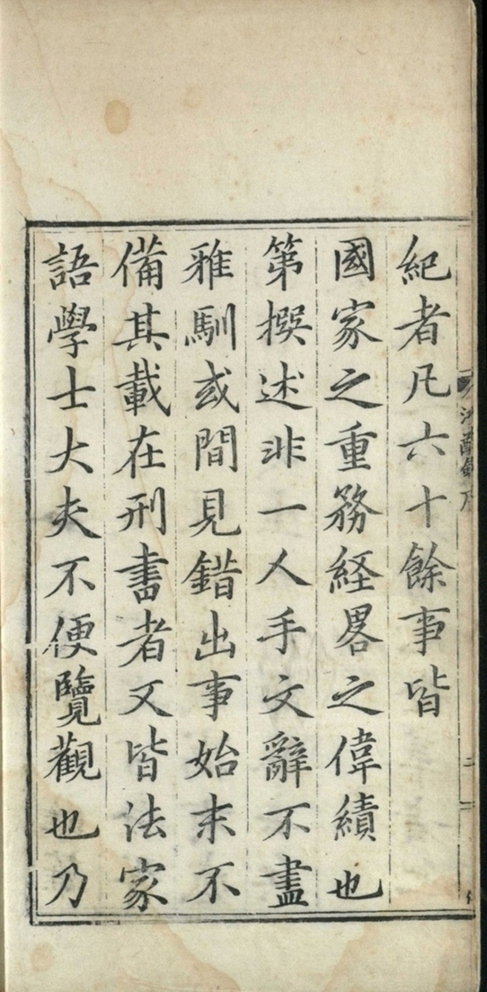 紀者凡六十餘事皆
國家之重務経畧之偉績也
第撰述非一人手文辭不盡
雅馴或間見錯出事始末不
備其載在刑書者又皆法家
語學士大夫不便覽觀也乃